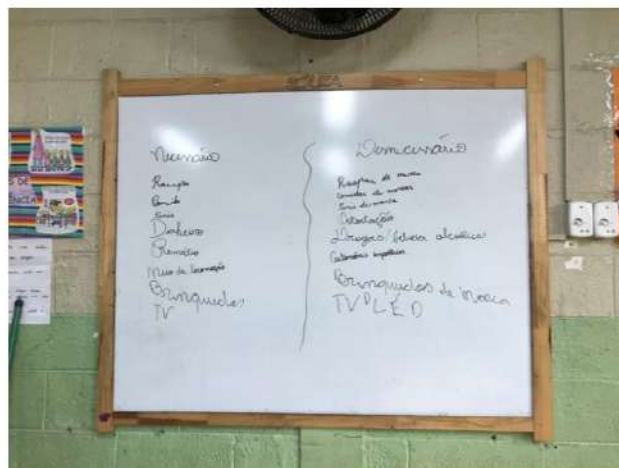 Necessário
Roupa
Comida
Tênis
Dinheiro
Remédio
Meio de locomoção
Brinquedos
TV
Desnecessário
Roupas de marca
Comidas de marca
Tênis de marca
Ostentação
Drogas/bebida alcoólica
Brinquedos de marca
TV LED